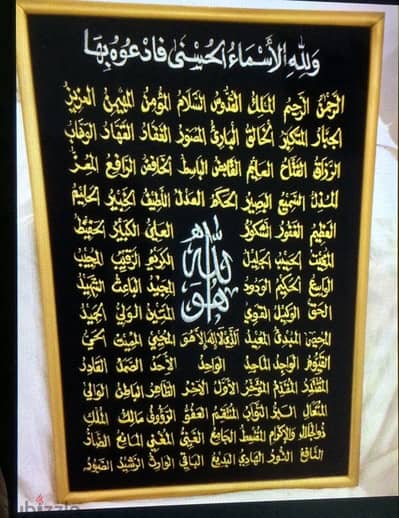 وَلِلَّهِ الْأَسْمَاءُ الْحُسْنَى فَادْعُوهُ بِهَا
الرحمن الرحيم الملك القدوس السلام المؤمن المهيمن العزيز
الجبار المتكبر الخالق البارئ المصور الغفار القهار الوهاب
الرزاق الفتاح العليم القابض الباسط الخافض الرافع المعز
المذل السميع البصير الحكم العدل اللطيف الخبير الحليم
العظيم الغفور الشكور العلي الكبير الحفيظ
المقيت الحسيب الجليل الكريم الرقيب المجيب
الواسع الحكيم الودود المجيد الباعث الشهيد
الله
هو
الحق الوكيل القوي المتين الولي الحميد
المحصي المبدئ المعيد الذي لا إله إلا هو المحيي المميت الحي
القيوم الواجد الماجد الواحد الأحد الصمد القادر
المقتدر المقدم المؤخر الأول الآخر الظاهر الباطن الوالي
المتعال البر التواب المنتقم العفو الرؤوف مالك الملك
ذوالجلال والإكرام المقسط الجامع الغني المغني المانع الضار
النافع النور الهادي البديع الباقي الوارث الرشيد الصبور
ubizzle